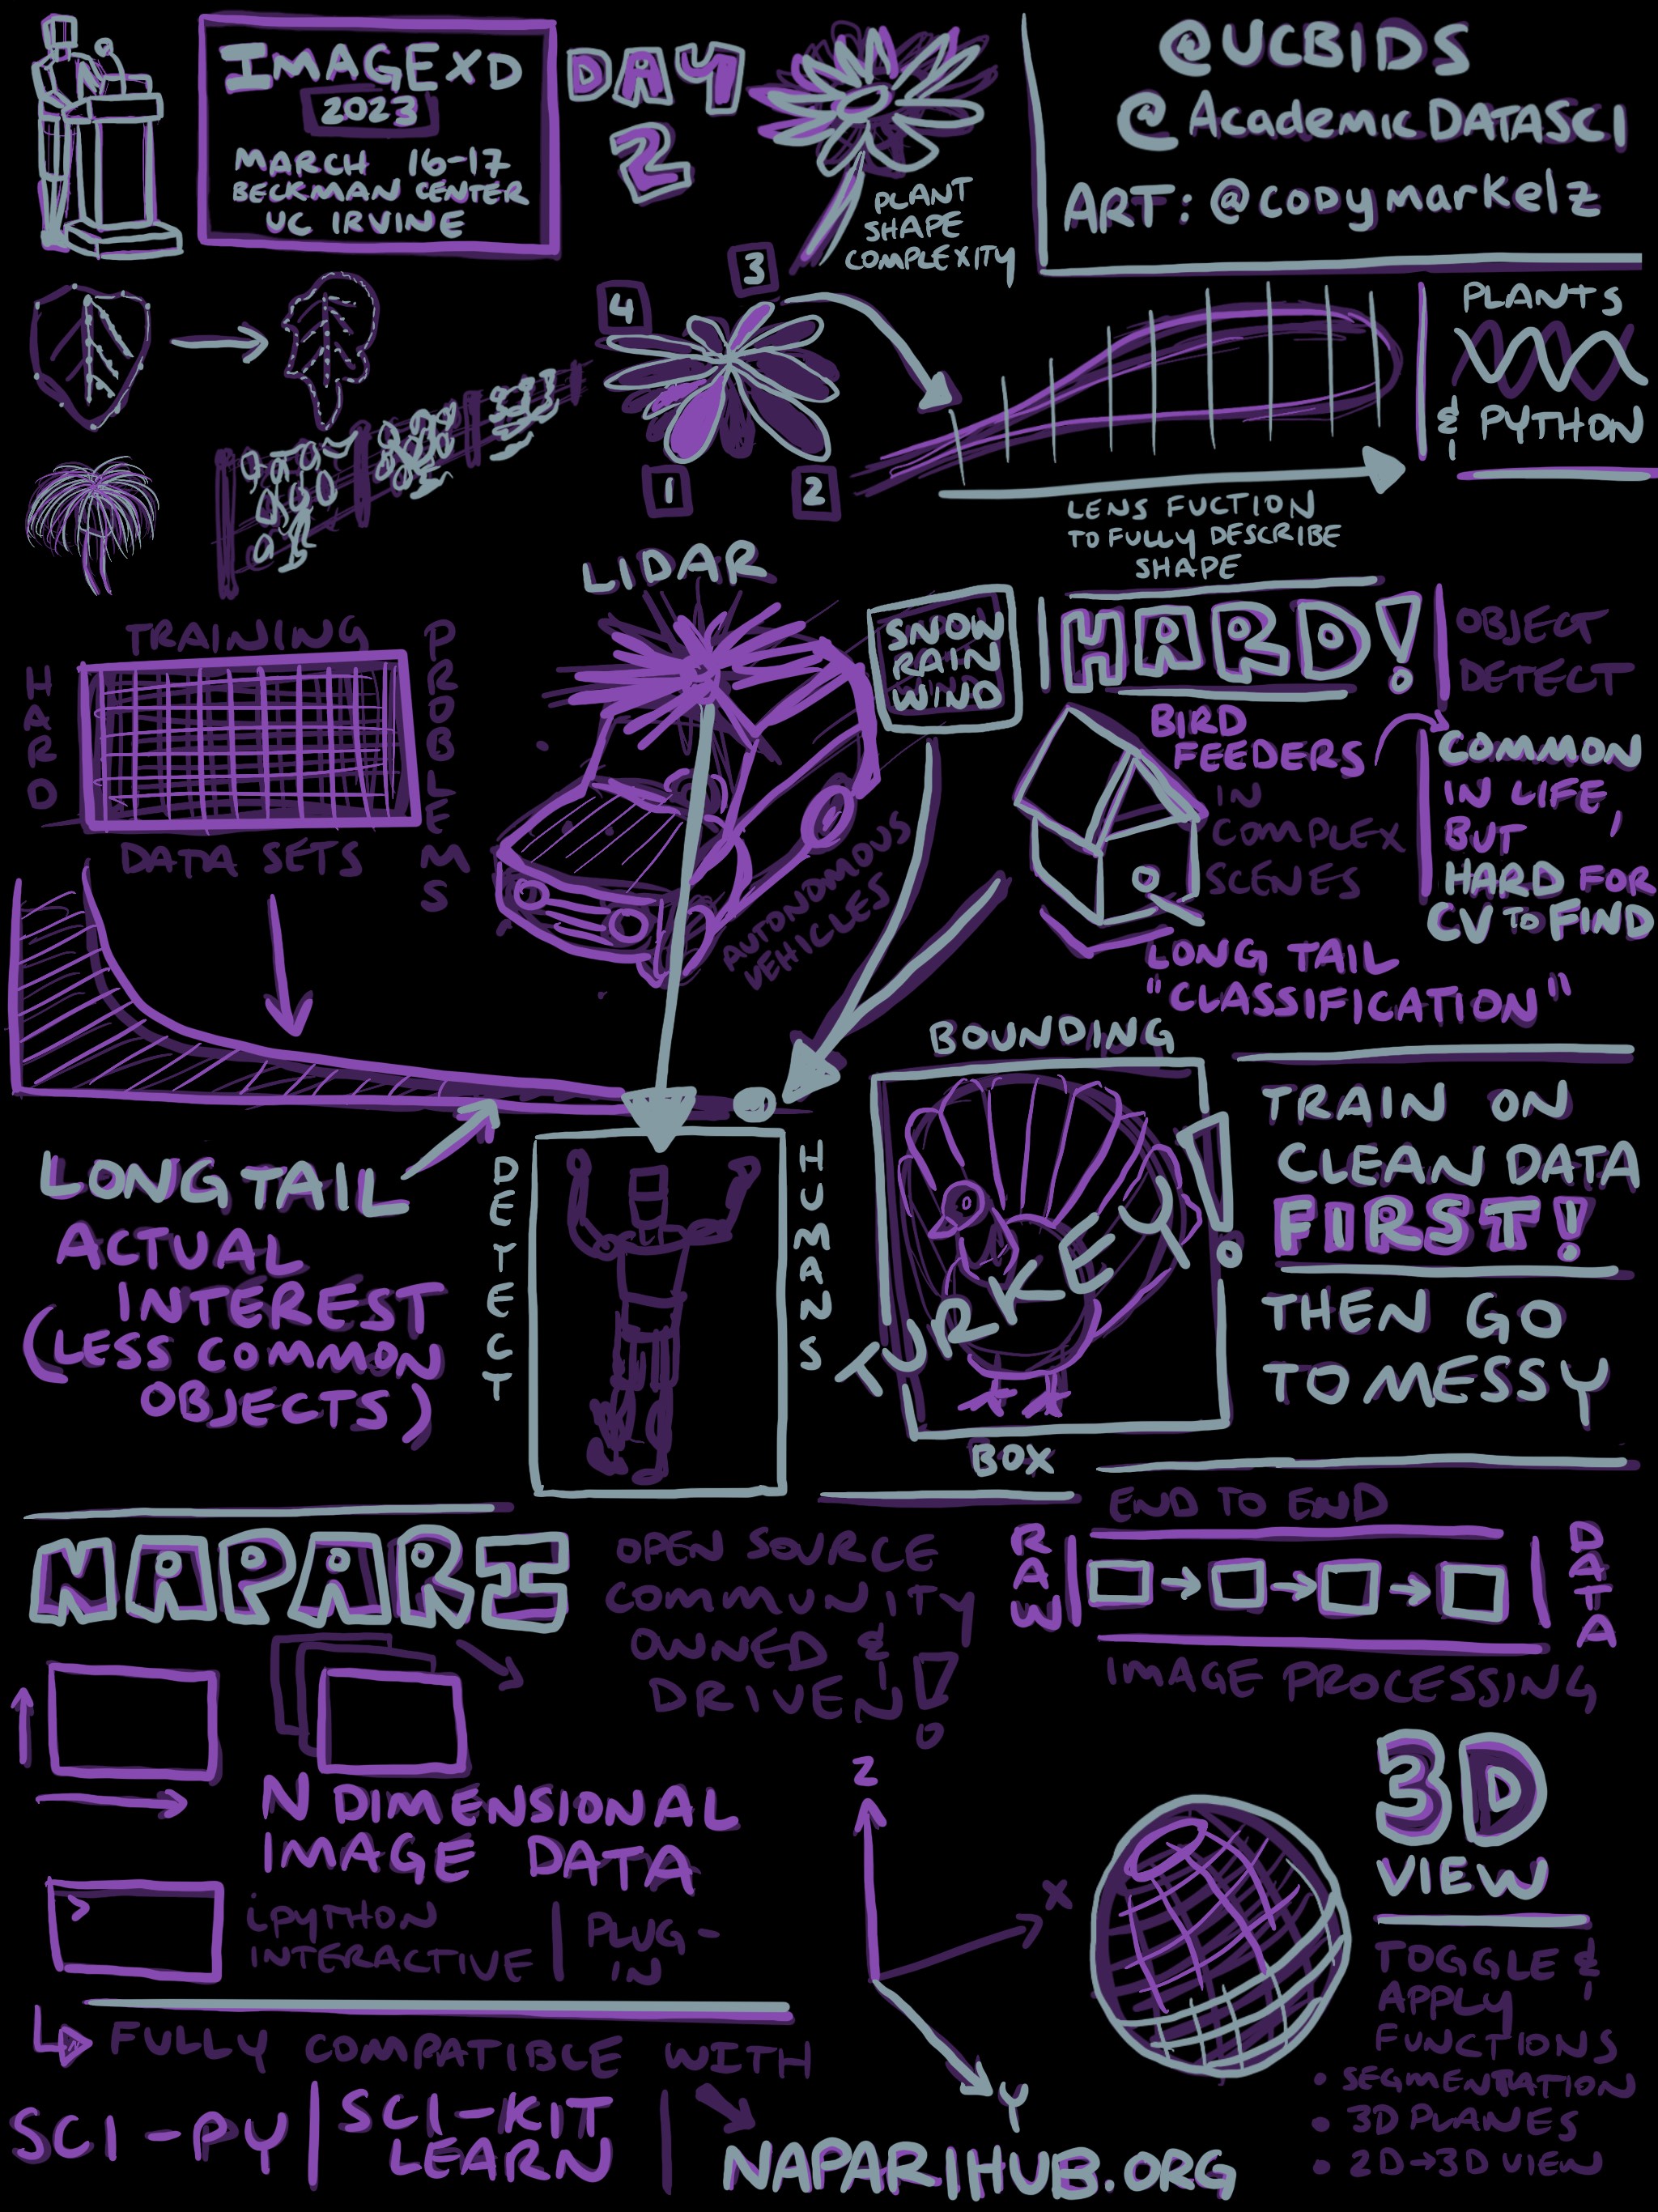 IMAGEXD
2023
MARCH 16-17
BECKMAN CENTER
UC IRVINE
DAY
2
@UCBIDS
@AcademicDATASCI
ART: @codymarkelz
PLANT
SHAPE
COMPLEXITY
4
3
1
2
LENS FUCTION
TO FULLY DESCRIBE
SHAPE
PLANTS
& PYTHON
TRAINING
DATA SETS
HARD
PROBLEMS
LIDAR
AUTONOMOUS
VEHICLES
SNOW
RAIN
WIND
HARD!
OBJECT
DETECT
BIRD
FEEDERS
IN
COMPLEX
SCENES
COMMON
IN LIFE,
BUT
HARD FOR
CV TO FIND
LONG TAIL
"CLASSIFICATION"
LONG TAIL
ACTUAL
INTEREST
(LESS COMMON
OBJECTS)
DETECT
HUMANS
BOUNDING
TURKEY!
BOX
TRAIN ON
CLEAN DATA
FIRST!
THEN GO
TO MESSY
NAPARI
OPEN SOURCE
COMMUNITY
OWNED &
DRIVEN!
END TO END
RAW
DATA
IMAGE PROCESSING
N DIMENSIONAL
IMAGE DATA
>
iPYTHON
INTERACTIVE
PLUG-
IN
Z
X
Y
3D
VIEW
TOGGLE &
APPLY
FUNCTIONS
• SEGMENTATION
• 3D PLANES
• 2D→3D VIEW
FULLY COMPATIBLE WITH
SCI-PY
SCI-KIT
LEARN
NAPARIHUB.ORG